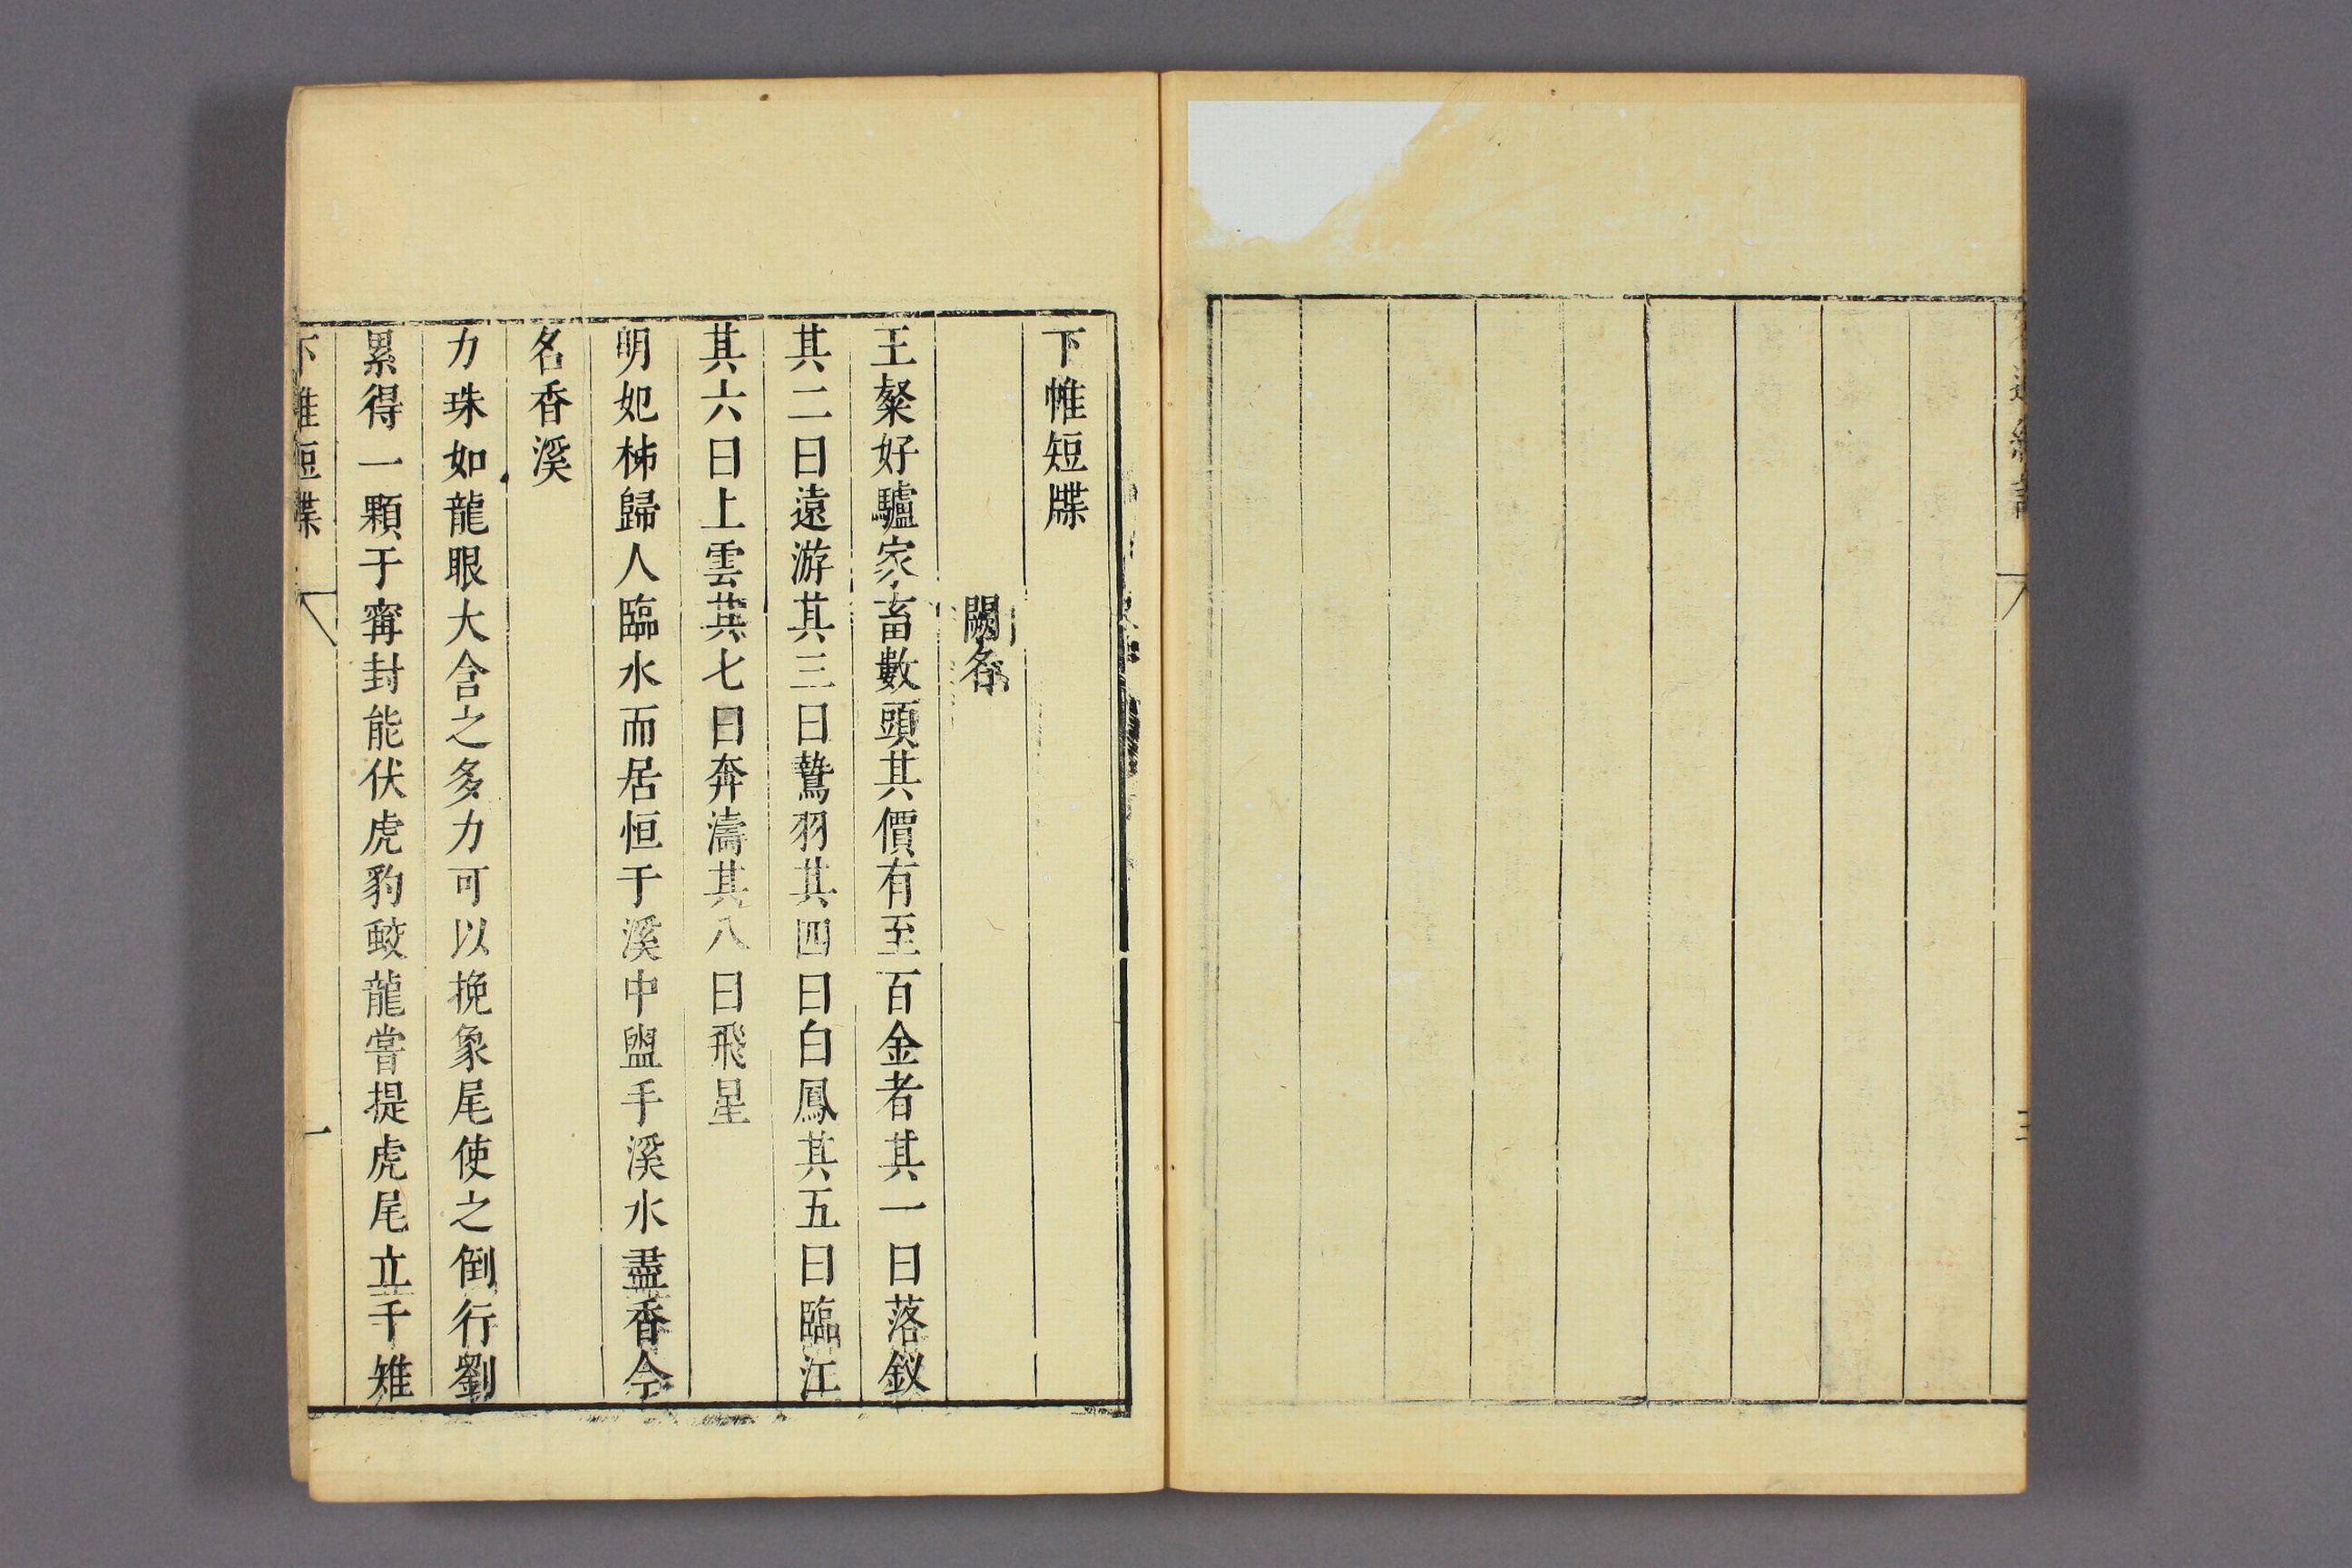 下帷短牒
闕名
王粲好驢家畜數頭其價有至百金者其一曰落釵
其二曰遠游其三曰鷙羽其四曰白鳳其五曰臨江
其六曰上雲其七曰奔濤其八曰飛星
明妃秭歸人臨水而居恒于溪中盥手溪水盡香今
名香溪
力珠如龍眼大含之多力可以挽象尾使之倒行劉
累得一顆于甯封能伏虎豹蛟龍嘗提虎尾立千雉
下帷短牒
一